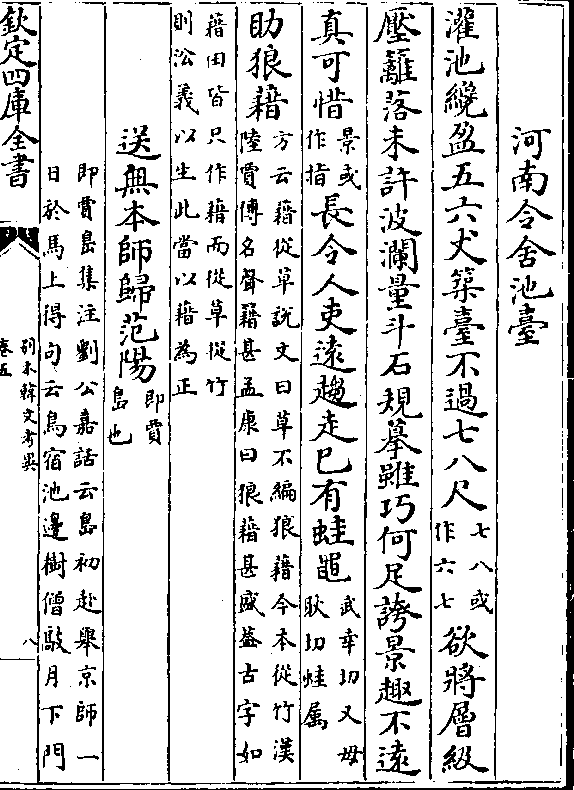 河南令舍池臺
灌池纔盈五六丈築臺不過七八尺七八或作六七欲將層級
壓籬落未許波瀾量斗石規摹雖巧何足誇景趣不遠
真可惜景或作指長令人吏遠趨走已有蛙黽武幸切又母耿切蛙属
助狼藉方云藉從草說文曰草不編狼藉今本從竹漢
陸賈傳名聲籍甚孟康曰狼藉甚盛葢古字如
藉田皆只作藉而從草從竹
則訟義以生此當以藉為正
送無本師歸范陽即賈島也
即賈島集注劉公嘉話云島初赴舉京師一
日於馬上得句云鳥宿池邊樹僧敲月下門
欽定四庫全書
別本韓文考異
卷五
八